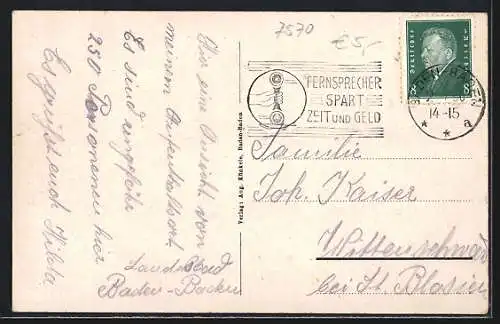 7570
€ 5,-
Hier eine Ansicht von
meinem Aufenthaltsort.
Es sind ungefähr
250 Personenen hier
Es grüßt euch Hilda
Landesbad
Baden-Baden
Verlag: Aug. Künkele, Baden-Baden
FERNSPRECHER
SPART
ZEIT UND GELD
Deutsches Reich
8 8
BADEN-BADEN
14-15
* a
Familie
Joh. Kaiser
Wittenschwand
bei St. Blasien